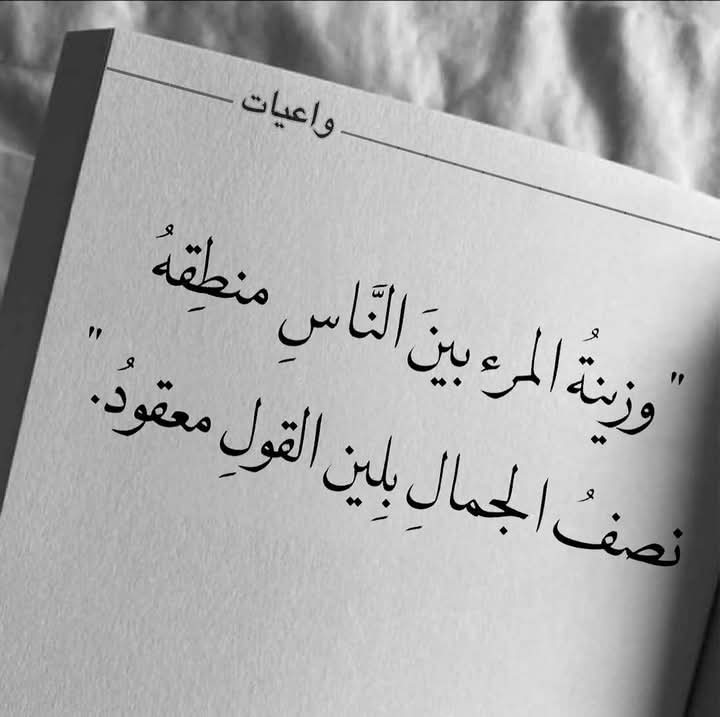 واعيات
" وزينةُ المرء بينَ النَّاسِ منطِقهُ
نصفُ الجمالِ بلِين القولِ معقودُ. "